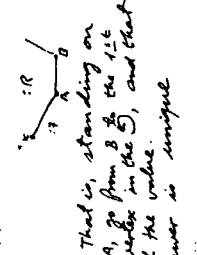 :R
B
A
That is, standing on
A, go from B to the 1st
vertex in the ), and that
the value.
is unique